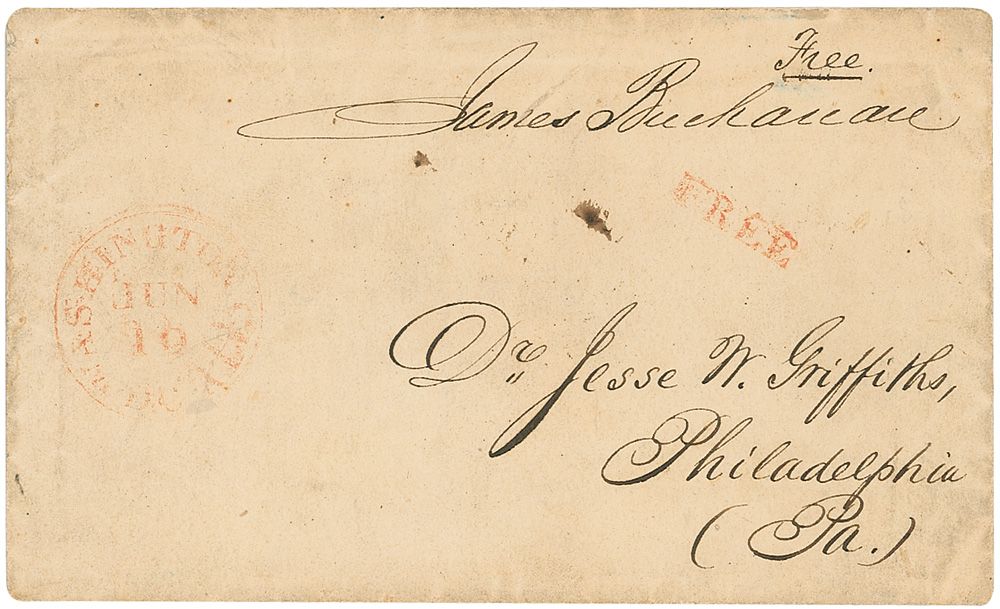 Free.
James Buchanan
FREE
WASHINGTON CITY
JUN
D.C.
Dr. Jesse W. Griffiths,
Philadelphia
(Pa.)